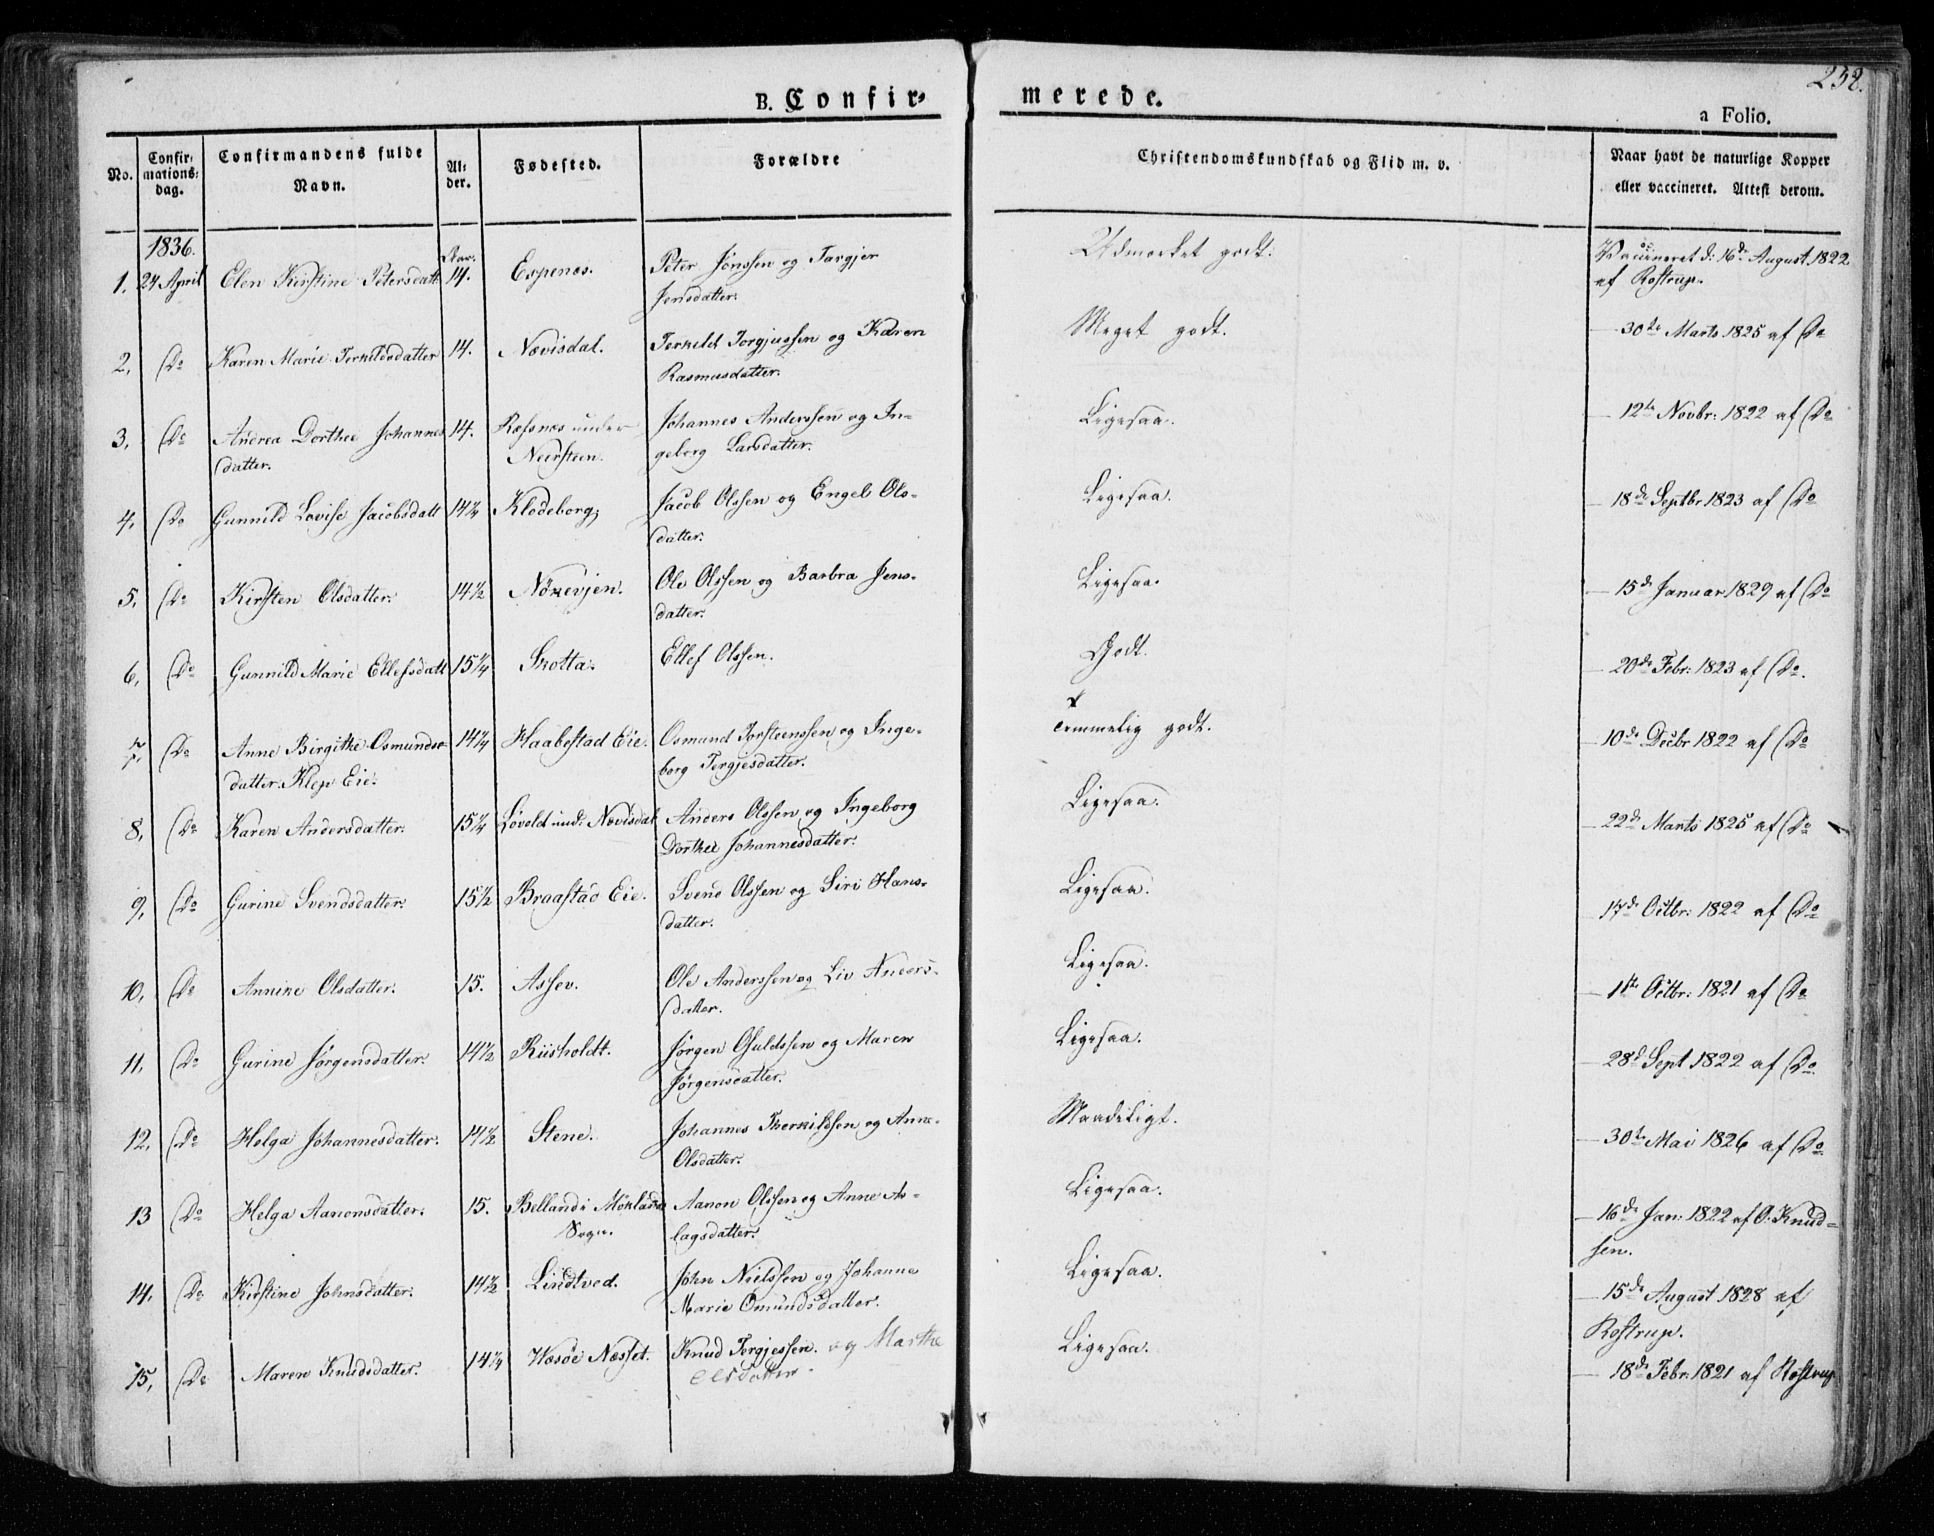 258.
B. Confirmerede.
a Folio.
No. Confirmationsdag. Confirmandens fulde Navn. Alder. Fødested. Forældre Christendomskundskab og Flid m. v. Naar havt de naturlige Kopper eller vaccineret. Attest derom.
1836.
1. 24 April Elen Kirstine Petersdatt 14. Espenæs. Peter Jonssen og Torgjer Jensdatter. Udmærket godt. Vaccineret d: 16de August 1822 af Rostrup.
2, Do Karen Marie Terkildsdatter 14. Nævisdal. Terkild Torgjussen og Karen Rasmusdatter. Meget godt. — 30te Marts 1825 af Do
3, Do Andrea Dorthee Johannesdatter. 14. Ræfsnes under Neersteen. Johannes Anderssen og Ingeborg Larsdatter. Ligesaa. — 12te Novbr: 1822 af Do
4, Do Gunnild Lovise Jacobsdatt 14¼ Klodeborg, Jacob Olssen og Engel Olsdatter. Ligesaa. — 18de Septbr 1823 af Do
5, Do Kirsten Olsdatter. 14½ Nörevjen. Ole Olssen og Barbra Jensdatter. Ligesaa. — 15de Januar 1829 af Do
6, Do Gunnild Marie Ellefsdatt 15¼ Skotta. Ellef Olssen. Godt. — 20de Febr: 1823 af Do.
7, Do Anne Birgithe Osmundsdatter. Klep Eie. 14¼ Haabestad Eie. Osmund Torsteenssen og Ingeborg Tergjesdatter. Temmelig godt. — 10de Decbr 1822 af Do
8, Do Karen Andersdatter. 15¼ Lövold und: Nævisdal Anders Olssen og Ingeborg Dorthee Johannesdatter. Ligesaa. — 22de Marts 1825 af Do
9, Do Gurine Svendsdatter. 15½ Braastad Eie. Svend Olssen og Siri Hansdatter. Ligesaa. — 17de Octbr: 1822 af Do
10, Do Annike Olsdatter. 15. Assev. Ole Anderssen og Liv Andersdatter. Ligesaa. — 1ste Octbr: 1821 af Do
11, Do Gurine Jörgensdatter. 14½ Riisholdt. Jörgen Osuldssen og Maren Jörgensdatter. Ligesaa. — 28de Sept 1822 af Do.
12, Do Helga Johannesdatter. 14½ Stene. Johannes Therkildssen og Anne Olsdatter. Maadeligt. — 30te Mai 1826 af Do
13 Do Helga Aanonsdatter. 15. Belland i Sogn. Aanon Olssen og Anne Aslagsdatter. Ligesaa. — 16de Jan: 1822 af O. Knudsen.
14, Do Kirstine Johnsdatter. 14½ Lindtved. John Nielssen og Johanne Marie Omundsdatter. Ligesaa. — 15de August 1828 af Rostrup.
15, Do Maren Knudsdatter. 14¼ Hæsöe Næsset. Knud Tergjessen. og Marthe Olsdatter Ligesaa. — 18de Febr: 1821 af Rostrup